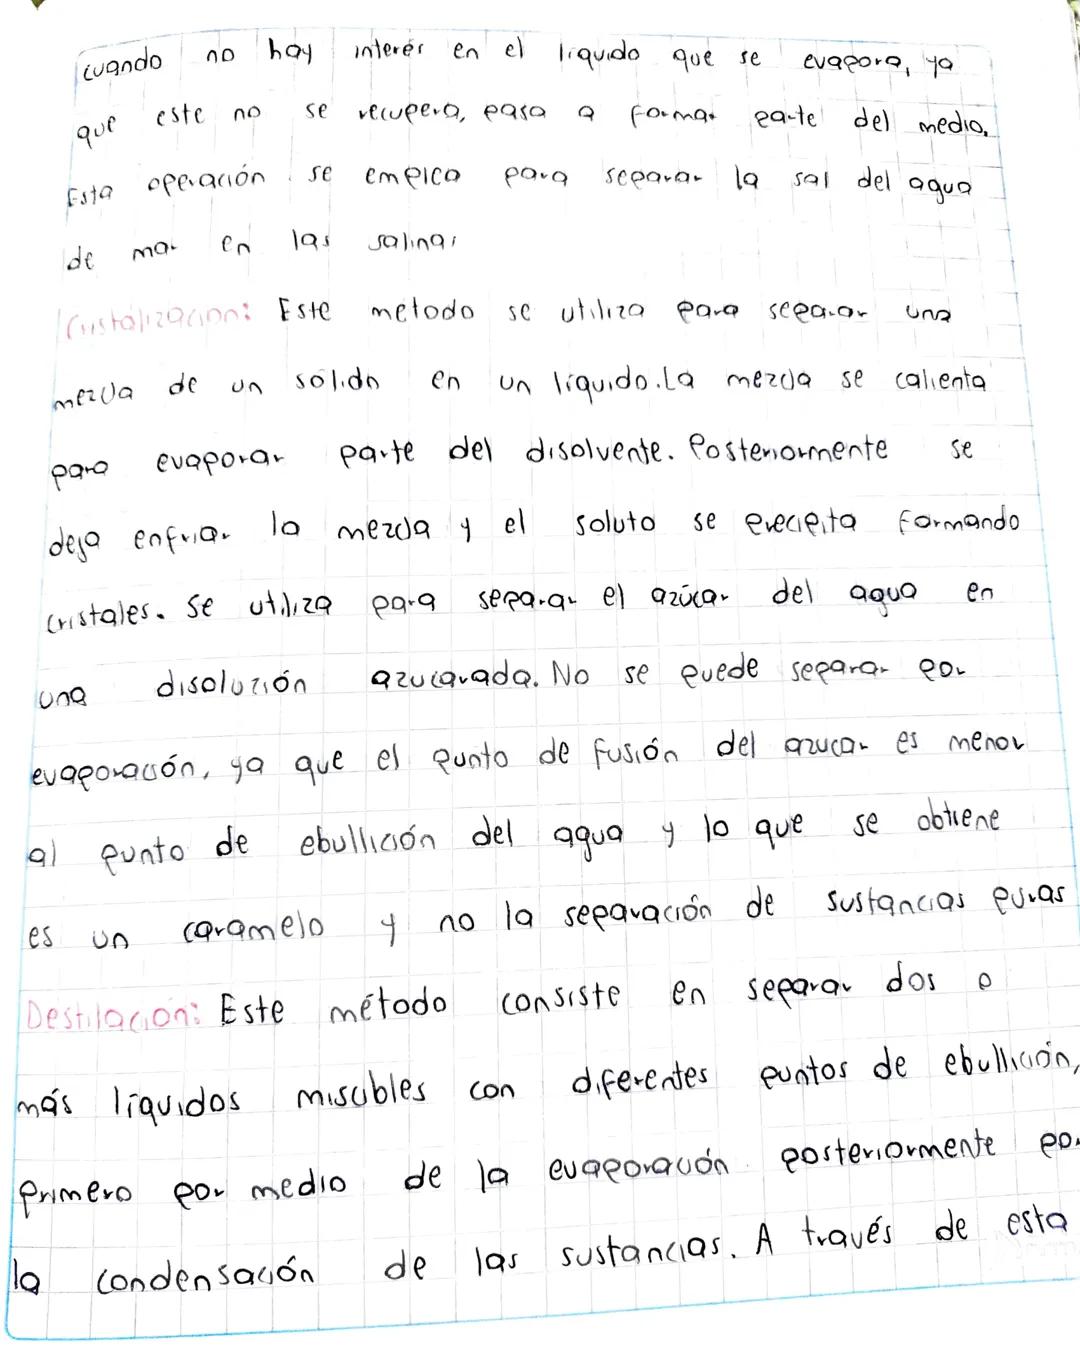 cuando no hay interés en el líquido que se evapora, ya
que este no se recupera, pasa a formar parte del medio.
Esta operación se emplea para separar la sal del agua
de mar en las salinas
Cristalización: Este método se utiliza para separar una
mezcla de un sólido en un líquido. La mezcla se calienta
para evaporar parte del disolvente. Posteriormente se
deja enfriar la mezcla y el soluto se precipita formando
cristales. Se utiliza para separar el azúcar del agua en
una disolución azucarada. No se puede separar por
evaporación, ya que el punto de fusión del azucar es menor
al punto de ebullición del agua y lo que se obtiene
es un caramelo y no la separación de sustancias puras
Destilación: Este método consiste en separar dos o
más líquidos miscibles con diferentes puntos de ebullición,
primero por medio de la evaporación posteriormente por
la condensación de las sustancias. A través de esta